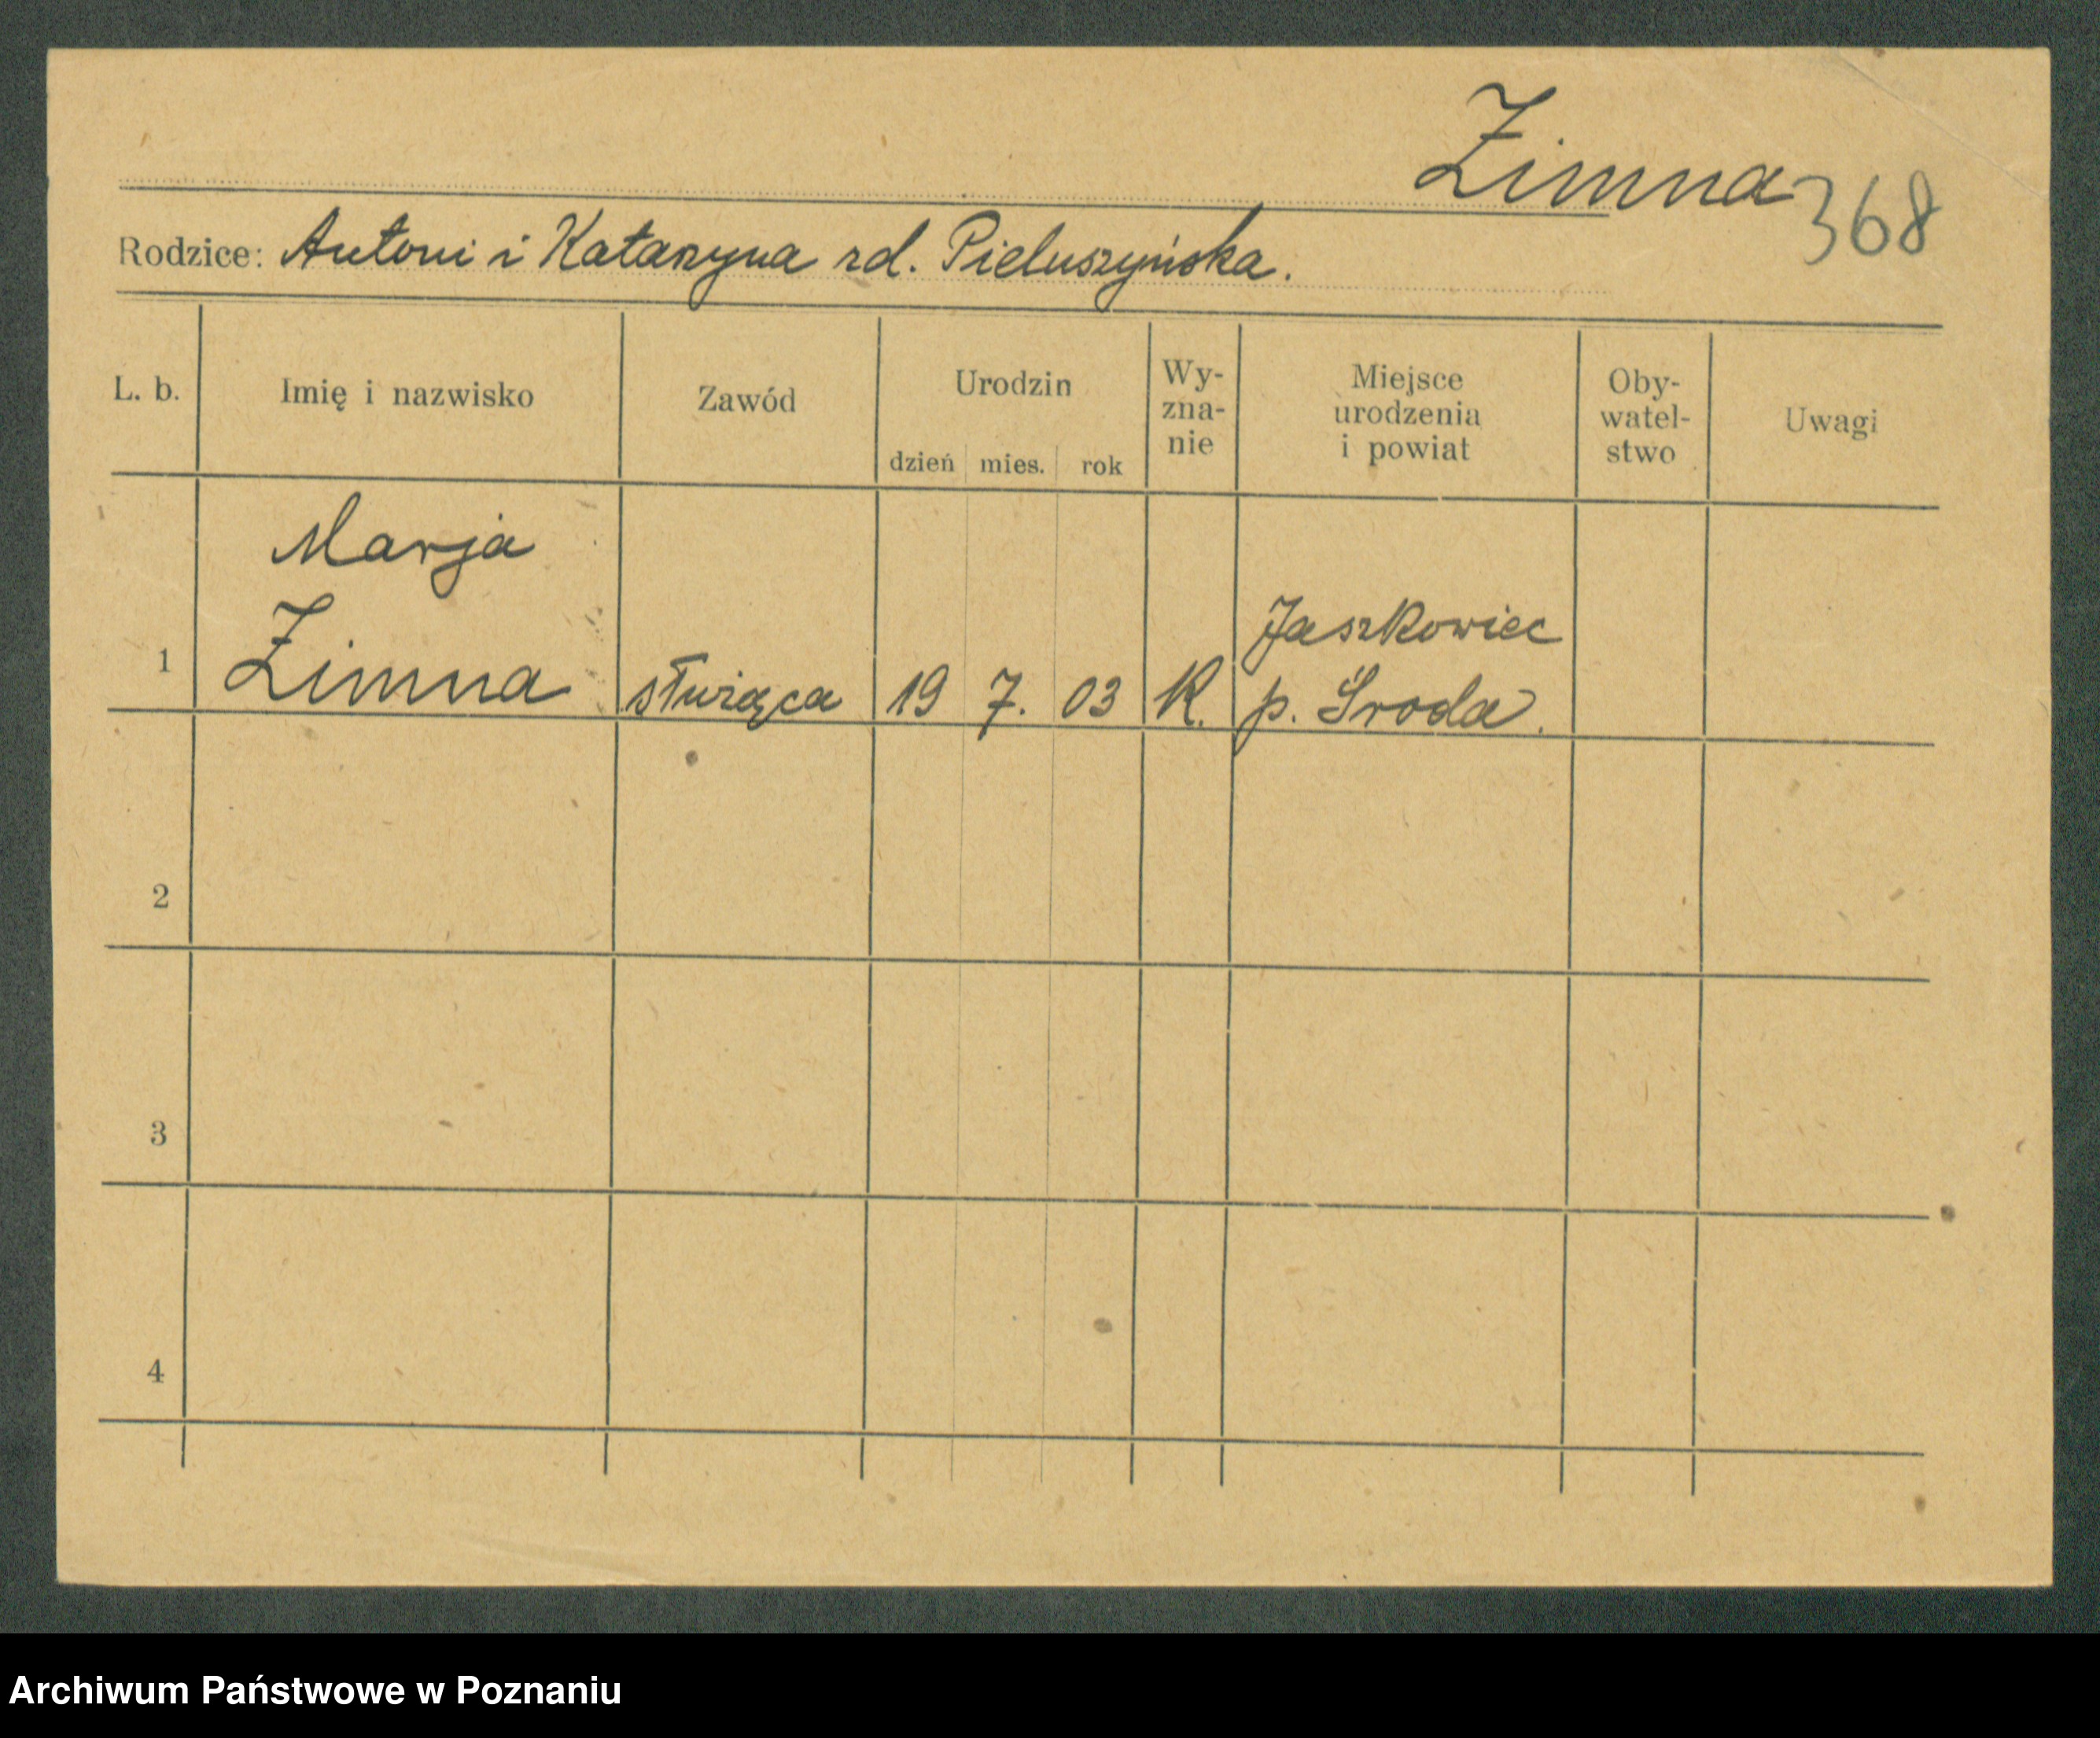 Zimna 368
Rodzice: Antoni i Katarzyna rd. Pieluszyńska.
L. b. Imię i nazwisko Zawód Urodzin Wy- Miejsce Oby- Uwagi
zna- urodzenia watel-
dzień mies. rok nie i powiat stwo
Marja
Jaszkowiec
1 Zimna służąca 19 7. 03 K. p. Środa.
2
3
4
Archiwum Państwowe w Poznaniu